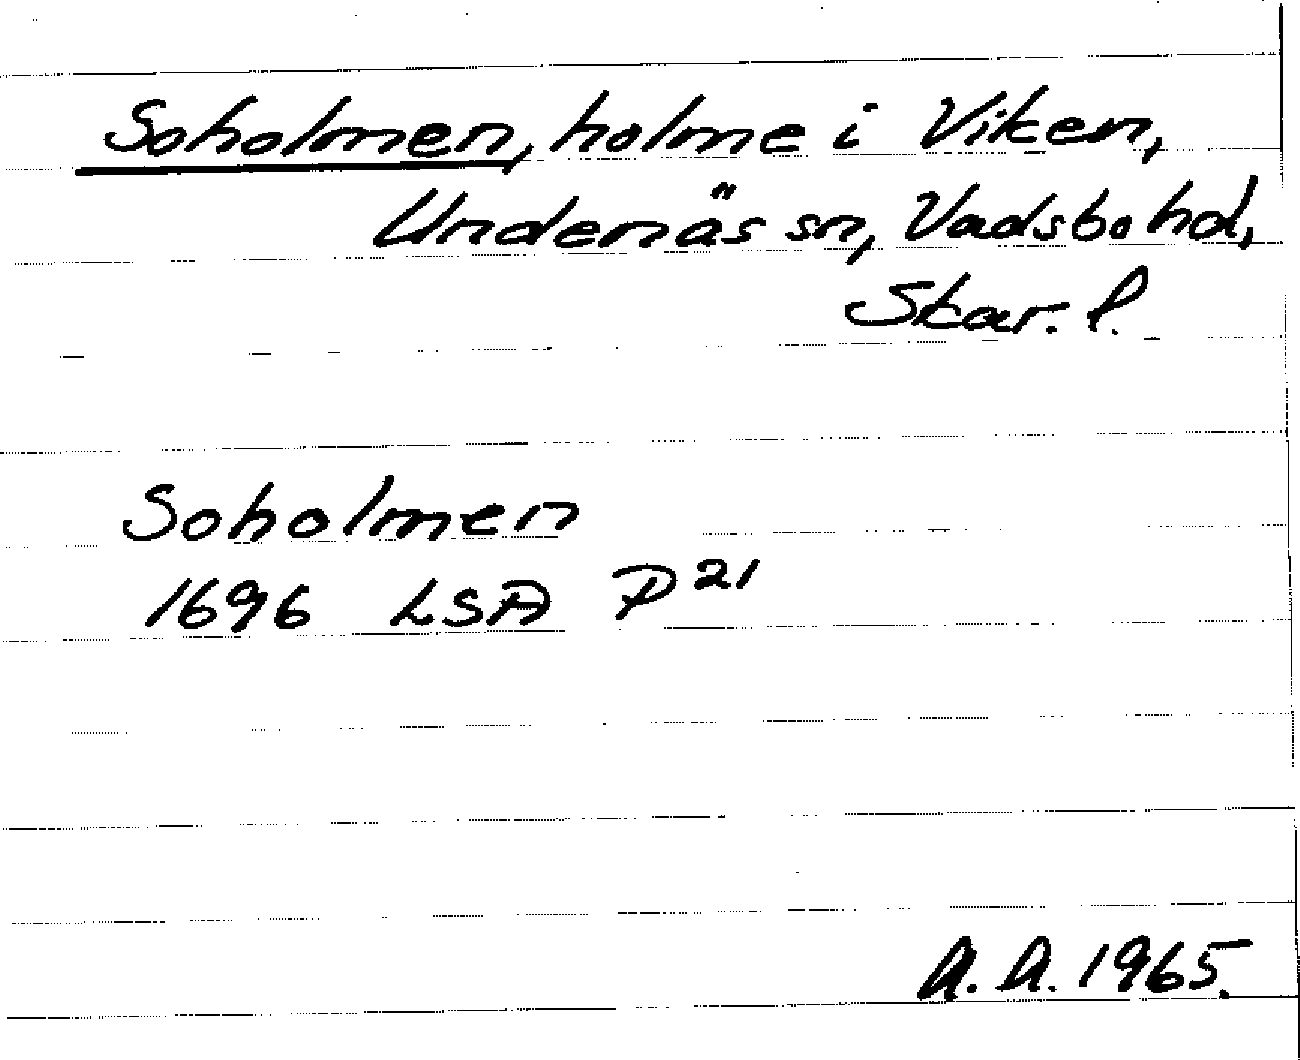 Soholmen, holme i Viken,
Undenäs sn, Vadsbo hd,
Skar. l.
Soholmen
1696 LSA P 21
A. A. 1965.